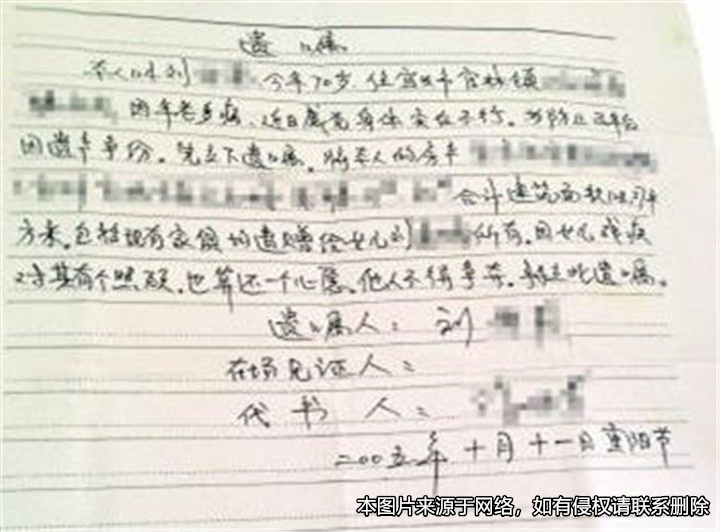 遗嘱
本人姓刘 今年70岁，住宜兴市官林镇
因年老多病，近日感觉身体实在不行。为防止百年后
因遗产争纷。先立下遗嘱。将本人的房产
合计建筑面积
方米。包括现有家俱均遗赠给女儿刘 所有。因女儿残疾
对其有个照顾。也算还一个心愿。他人不得争夺。特立此遗嘱。
遗嘱人：刘
在场见证人：
代书人：
二00五年十月十一日重阳节
本图片来源于网络，如有侵权请联系删除